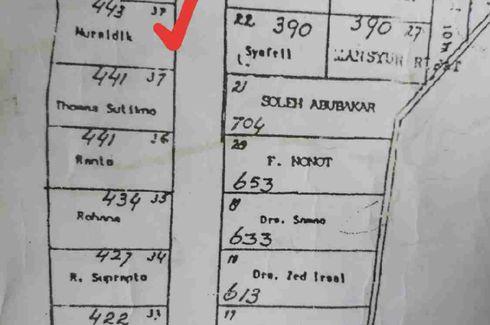 443 37
Nuraldik
441 37
Thomas Sutilmo
441 36
Ranto
434 35
Rohana
427 34
R. Suprapto
422 33
22 390
Syafril
390 27
MANSYUR
21
SOLEH ABUBAKAR
704
20
F. NONOT
653
Drs.
633
18
Drs. Zed
613
17